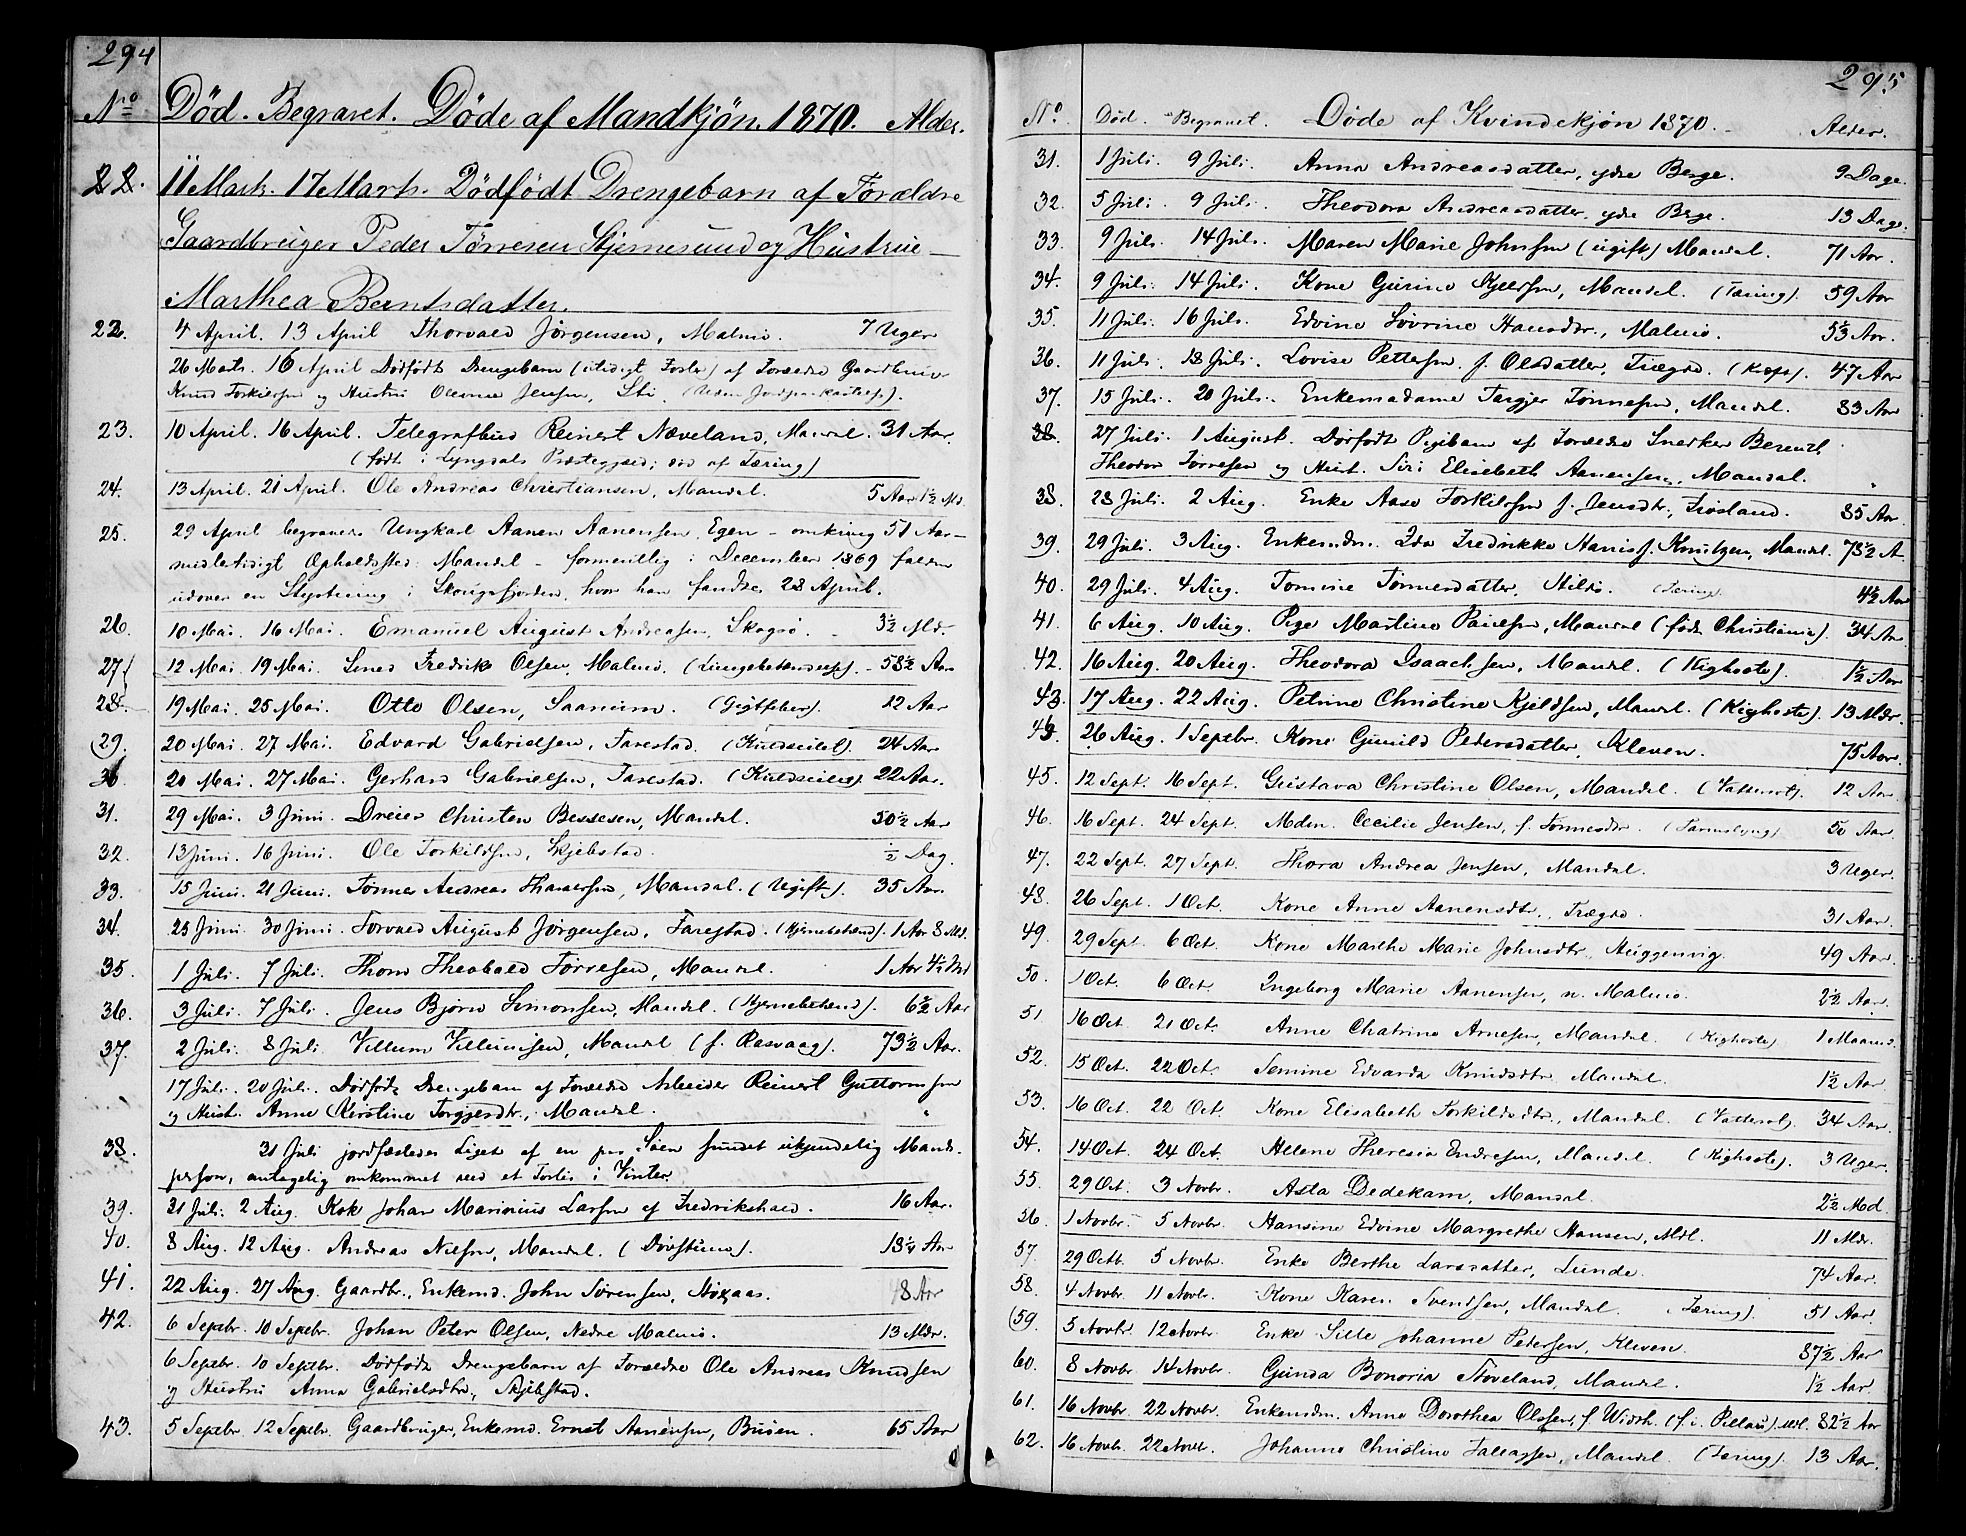 294
No Død. Begravet. Døde af Mandkjøn. 1870. Alder.
22. 11 Marts. 17 Marts. Dødfødt Drengebarn af Forældre
Gaardbruger Peder Tørresen Stjernesund og Hustrue
Marthea Berntsdatter.
22. 4 April. 13 April Thorvald Jørgensen, Malmø. 7 Uger
26 Marts. 16 April Dødfødt Drengebarn (utidigt Foster) af Forældre Gaardbruger
Knud Torkilsen og Hustru Olesine Jensen, Sti. (Uden Jordpaakastelse).
23. 10 April. 16 April. Telegrafbud Reinert Næveland, Mandal. 31 Aar.
(født i Lyngdals Præstegjæld; død af Tæring)
24. 13 April. 21 April. Ole Andreas Christiansen, Mandal. 5 Aar 1½ Md.
25. 29 April begraven Ungkarl Aanen Aanensen Egen - omkring 51 Aar -
midlertidigt Opholdssted: Mandal - formentlig i December 1869 falden
udover en Styrtning i Skougsfjorden, hvor han fandtes 28 April.
26. 10 Mai. 16 Mai. Emanuel August Andreasen, Skogsø. 3½ Md.
27. 12 Mai. 19 Mai. Smed Fredrik Olsen, Malmø. (Lungebetændelse). 58½ Aar
28. 19 Mai. 25 Mai. Otto Olsen, Saanum. (Gigtfeber). 12 Aar
(29. 20 Mai. 27 Mai. Edvard Gabrielsen, Farestad. (Kuldseilet). 24 Aar
30. 20 Mai. 27 Mai. Gerhard Gabrielsen, Farestad. (Kuldseilet) 22 Aar.
31. 29 Mai. 3 Juni. Dreier Christen Bessesen, Mandal. 50½ Aar
32. 13 Juni. 16 Juni. Ole Torkildsen, Skjebstad. ½ Dag.
33. 15 Juni. 21 Juni. Tønnes Andreas Tharaldsen, Mandal. (Ugift). 35 Aar.
34. 25 Juni. 30 Juni. Torvald August Jørgensen, Farestad. (Hjernebetænd). 1 Aar 8 Md.
35. 1 Juli. 7 Juli. Thom Theobald Tørresen, Mandal. 1 Aar 4½ Md
36. 3 Juli. 7 Juli. Jens Bjørn Simonsen, Mandal. (Hjernebetænd). 6½ Aar
37. 2 Juli. 8 Juli. Villum Villumsen, Mandal (f. Rasvaag). 73½ Aar.
17 Juli. 20 Juli. Dødfødt Drengebarn af Forældre Arbeider Reinert Guttormsen
og Hust. Anne Kirstine Torgjersdtr., Mandal. "
38. 21 Juli jordfæstedes Liget af en paa Søen fundet ukjendelig Mands-
person, antagelig omkommet ved et Forlis i Vinter.
39. 31 Juli. 2 Aug. Kok Johan Marinius Larsen af Fredrikshald. 16 Aar.
40. 8 Aug. 12 Aug. Andreas Nilsen, Mandal. (Døvstum). 13¼ Aar
41. 22 Aug. 27 Aug. Gaardbr., Enkemd. John Sørensen, 8 Aar
42. 6 Septbr. 10 Septbr. Johan Peter Olsen, Nedre Malmø. 13 Mdr.
6 Septbr. 10 Septbr. Dødfødt Drengebarn af Forældre Ole Andreas Knudsen
og Hustru Anna Gabrielsdtr., Skjebstad.
43. 5 Septbr. 12 Septbr. Gaardbruger, Enkemd. Ernst Aanensen, Buøen. 65 Aar
295
No. Død. Begravet. Døde af Kvindekjøn 1870. Alder.
31. 1 Juli. 9 Juli. Anna Andreasdatter, ydre Berge. 9 Dage.
32. 5 Juli. 9 Juli. Theodora Andreasdatter, ydre Berge. 13 Dage.
33. 9 Juli. 14 Juli. Maren Marie Johnsen (ugift) Mandal. 71 Aar.
34. 9 Juli. 14 Juli. Kone Gurine Kjeldsen, Mandal. (Tæring). 59 Aar
35. 11 Juli. 16 Juli. Edvine Lovrine Hansdtr., Malmø. 5½ Aar.
36. 11 Juli. 18 Juli. Lovise Pettersen f. Olsdatter, Trægde. (Kræft). 47 Aar
37. 15 Juli. 20 Juli. Enkemadame Targjer Tønnesen, Mandal. 83 Aar
38. 27 Juli. 1 August. Dødfødt Pigebarn af Forældre Snedker Berendt
Theodor Tørresen og Hust. Siri Elisabeth Aanensen, Mandal. "
38. 28 Juli. 2 Aug. Enke Aase Torkildsen f. Jensdtr., Frøsland. 85 Aar
39. 29 Juli. 3 Aug. Enkemdm. Ida Fredrikke Hanis f. Knutzen, Mandal. 73½ A
40. 29 Juli. 4 Aug. Tomine Tønnesdatter, Hilde. (Tæring). 4½ Aar
41. 6 Aug. 10 Aug. Pige Martine Paulsen, Mandal (født Christiania). 34 Aar
42. 16 Aug. 20 Aug. Theodora Isaachsen, Mandal. (Kighoste). 1½ Aar
43. 17 Aug. 22 Aug. Petrine Christine Kjeldsen, Mandal. (Kighoste). 13 Mdr.
44. 26 Aug. 1 Septbr. Kone Gunild Pedersdatter, Kleven. 75 Aar.
45. 12 Sept. 16 Sept. Gustava Christine Olsen, Mandal. (Vattersot). 12 Aar.
46. 16 Sept. 24 Sept. Mdm. Cecilie Jensen, f. Tønnesdtr. (Tarmslyng). 50 Aar.
47. 22 Sept. 27 Sept. Thora Andrea Jensen, Mandal. 3 Uger.
48. 26 Sept. 1 Oct. Kone Anne Aanensdtr., Trægde. 31 Aar.
49. 29 Sept. 6 Oct. Kone Marthe Marie Johnsdtr., Huggenvig. 49 Aar.
50. 1 Oct. 6 Oct. Ingeborg Marie Aanensen, n. Malmø. 2½ Aar.
51. 16 Oct. 21 Oct. Anne Chatrine Arnesen, Mandal. (Kighoste). 1 Maaned.
52. 15 Oct. 22 Oct. Semine Edvarda Knudsdtr., Mandal. 1½ Aar.
53. 16 Oct. 22 Oct. Kone Elisabeth Torkildsdtr., Mandal. (Vattersot). 34 Aar.
54. 14 Oct. 24 Oct. Helene Theresia Endresen, Mandal. (Kighoste). 3 Uger.
55. 29 Oct. 3 Novbr. Asta Dedekam, Mandal. 2½ Md.
56. 1 Novbr. 5 Novbr. Hansine Edvine Margrethe Hansen, Mdl. 11 Mdr.
57. 29 Octb. 5 Novbr. Enke Berthe Larsdatter, Lunde. 74 Aar.
58. 4 Novbr. 11 Novbr. Kone Karen Svendsen, Mandal. (Tæring). 51 Aar.
(59. 5 Novbr. 12 Novbr. Enke Sille Johanne Petersen, Kleven. 87½ Aar
60. 8 Novbr. 14 Novbr. Gunda Bonoria Støveland, Mandal. 1½ Aar.
61. 16 Novbr. 22 Novbr. Enkemdm. Anne Dorothea Olssen, f. Width. (f. i Pillau). Mdl. 82½ Aar
62. 16 Novbr. 22 Novbr. Johanne Christine Tallagsen, Mandal. (Tæring). 13 Aar.